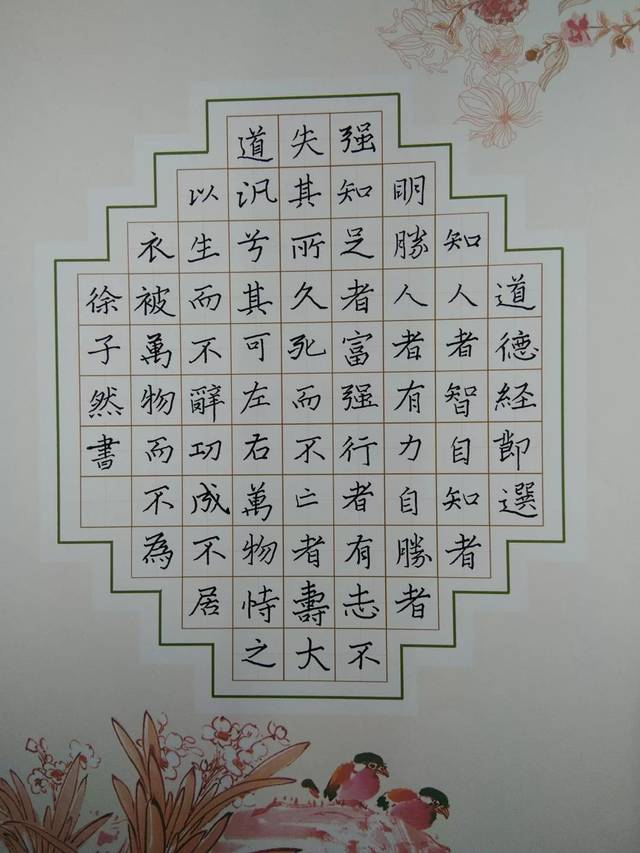 道德經節選
知人者智自知者
明勝人者有力自勝者
强知足者富强行者有志不
失其所久死而不亡者壽大
道汎兮其可左右萬物恃之
以生而不辭功成不居
衣被萬物而不為
徐子然書